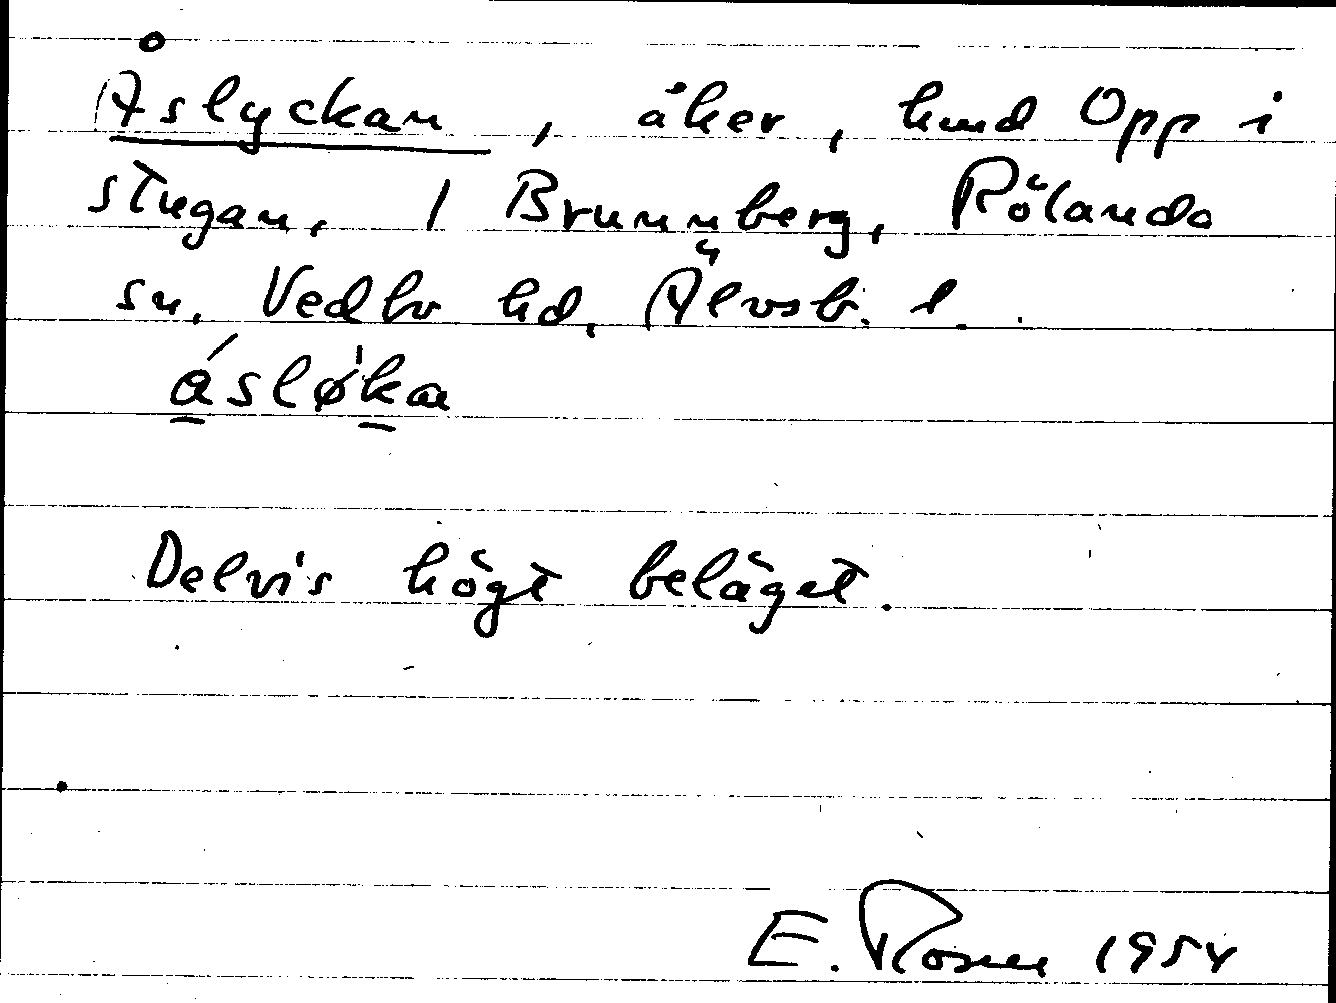 Åslyckan, åker, hmd Opp i
stugan, 1 Brunnberg, Rölanda
sn. Vedbo hd, Älvsb. l.
á̲sløk̲̍an
Delvis högt beläget.
E. Rosell 1954